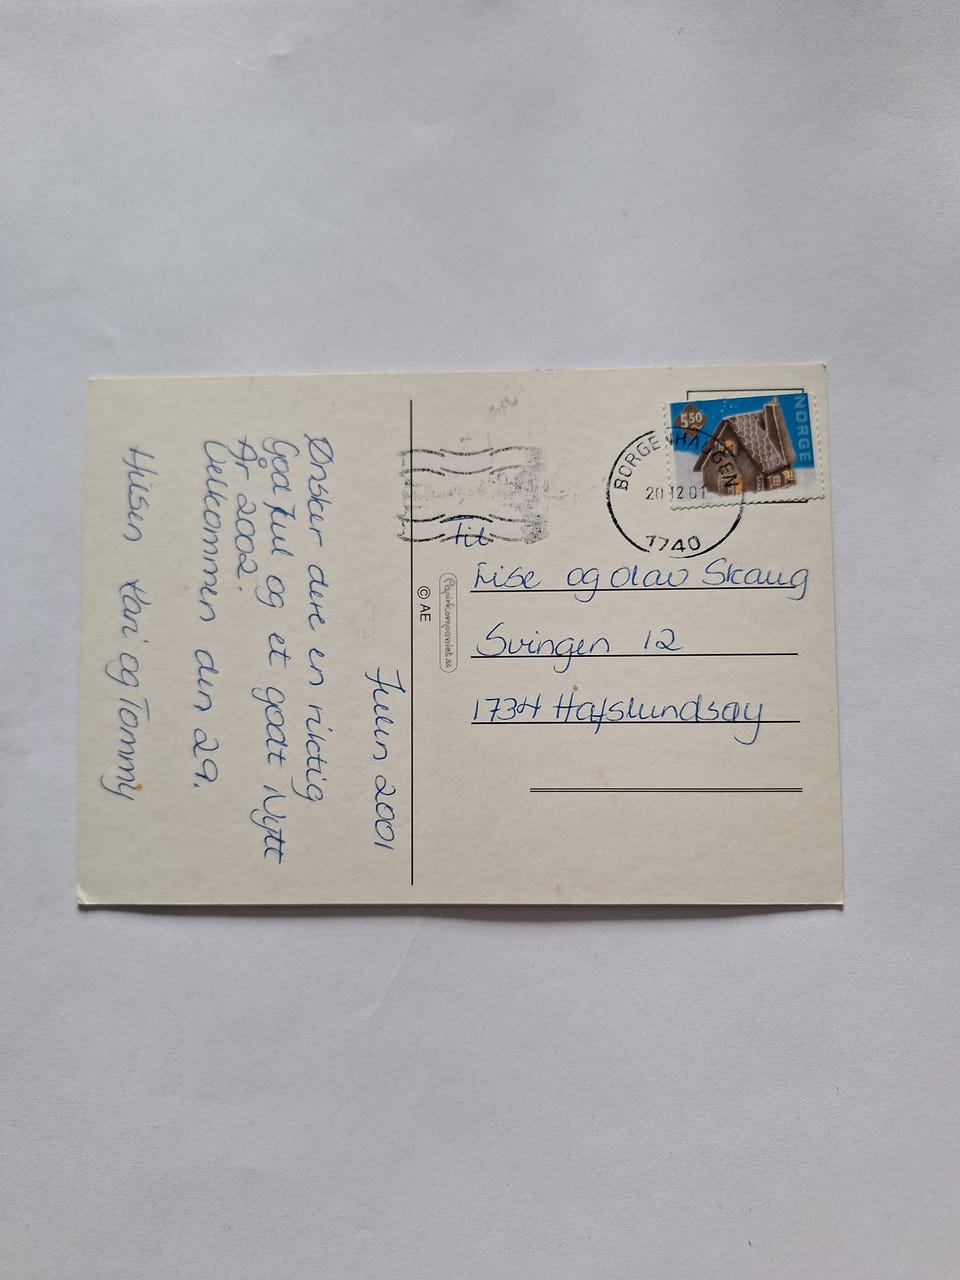 Julen 2001
Ønsker dere en riktig
God Jul og et godt Nytt
År 2002.
Velkommen den 29.
Hilsen Kari og Tommy
© AE
Papirkompaniet as
NORGE
5,50
BORGENHAUGEN
20 12 01
1740
Til
Lise og Olav Skaug
Svingen 12
1734 Hafslundsøy